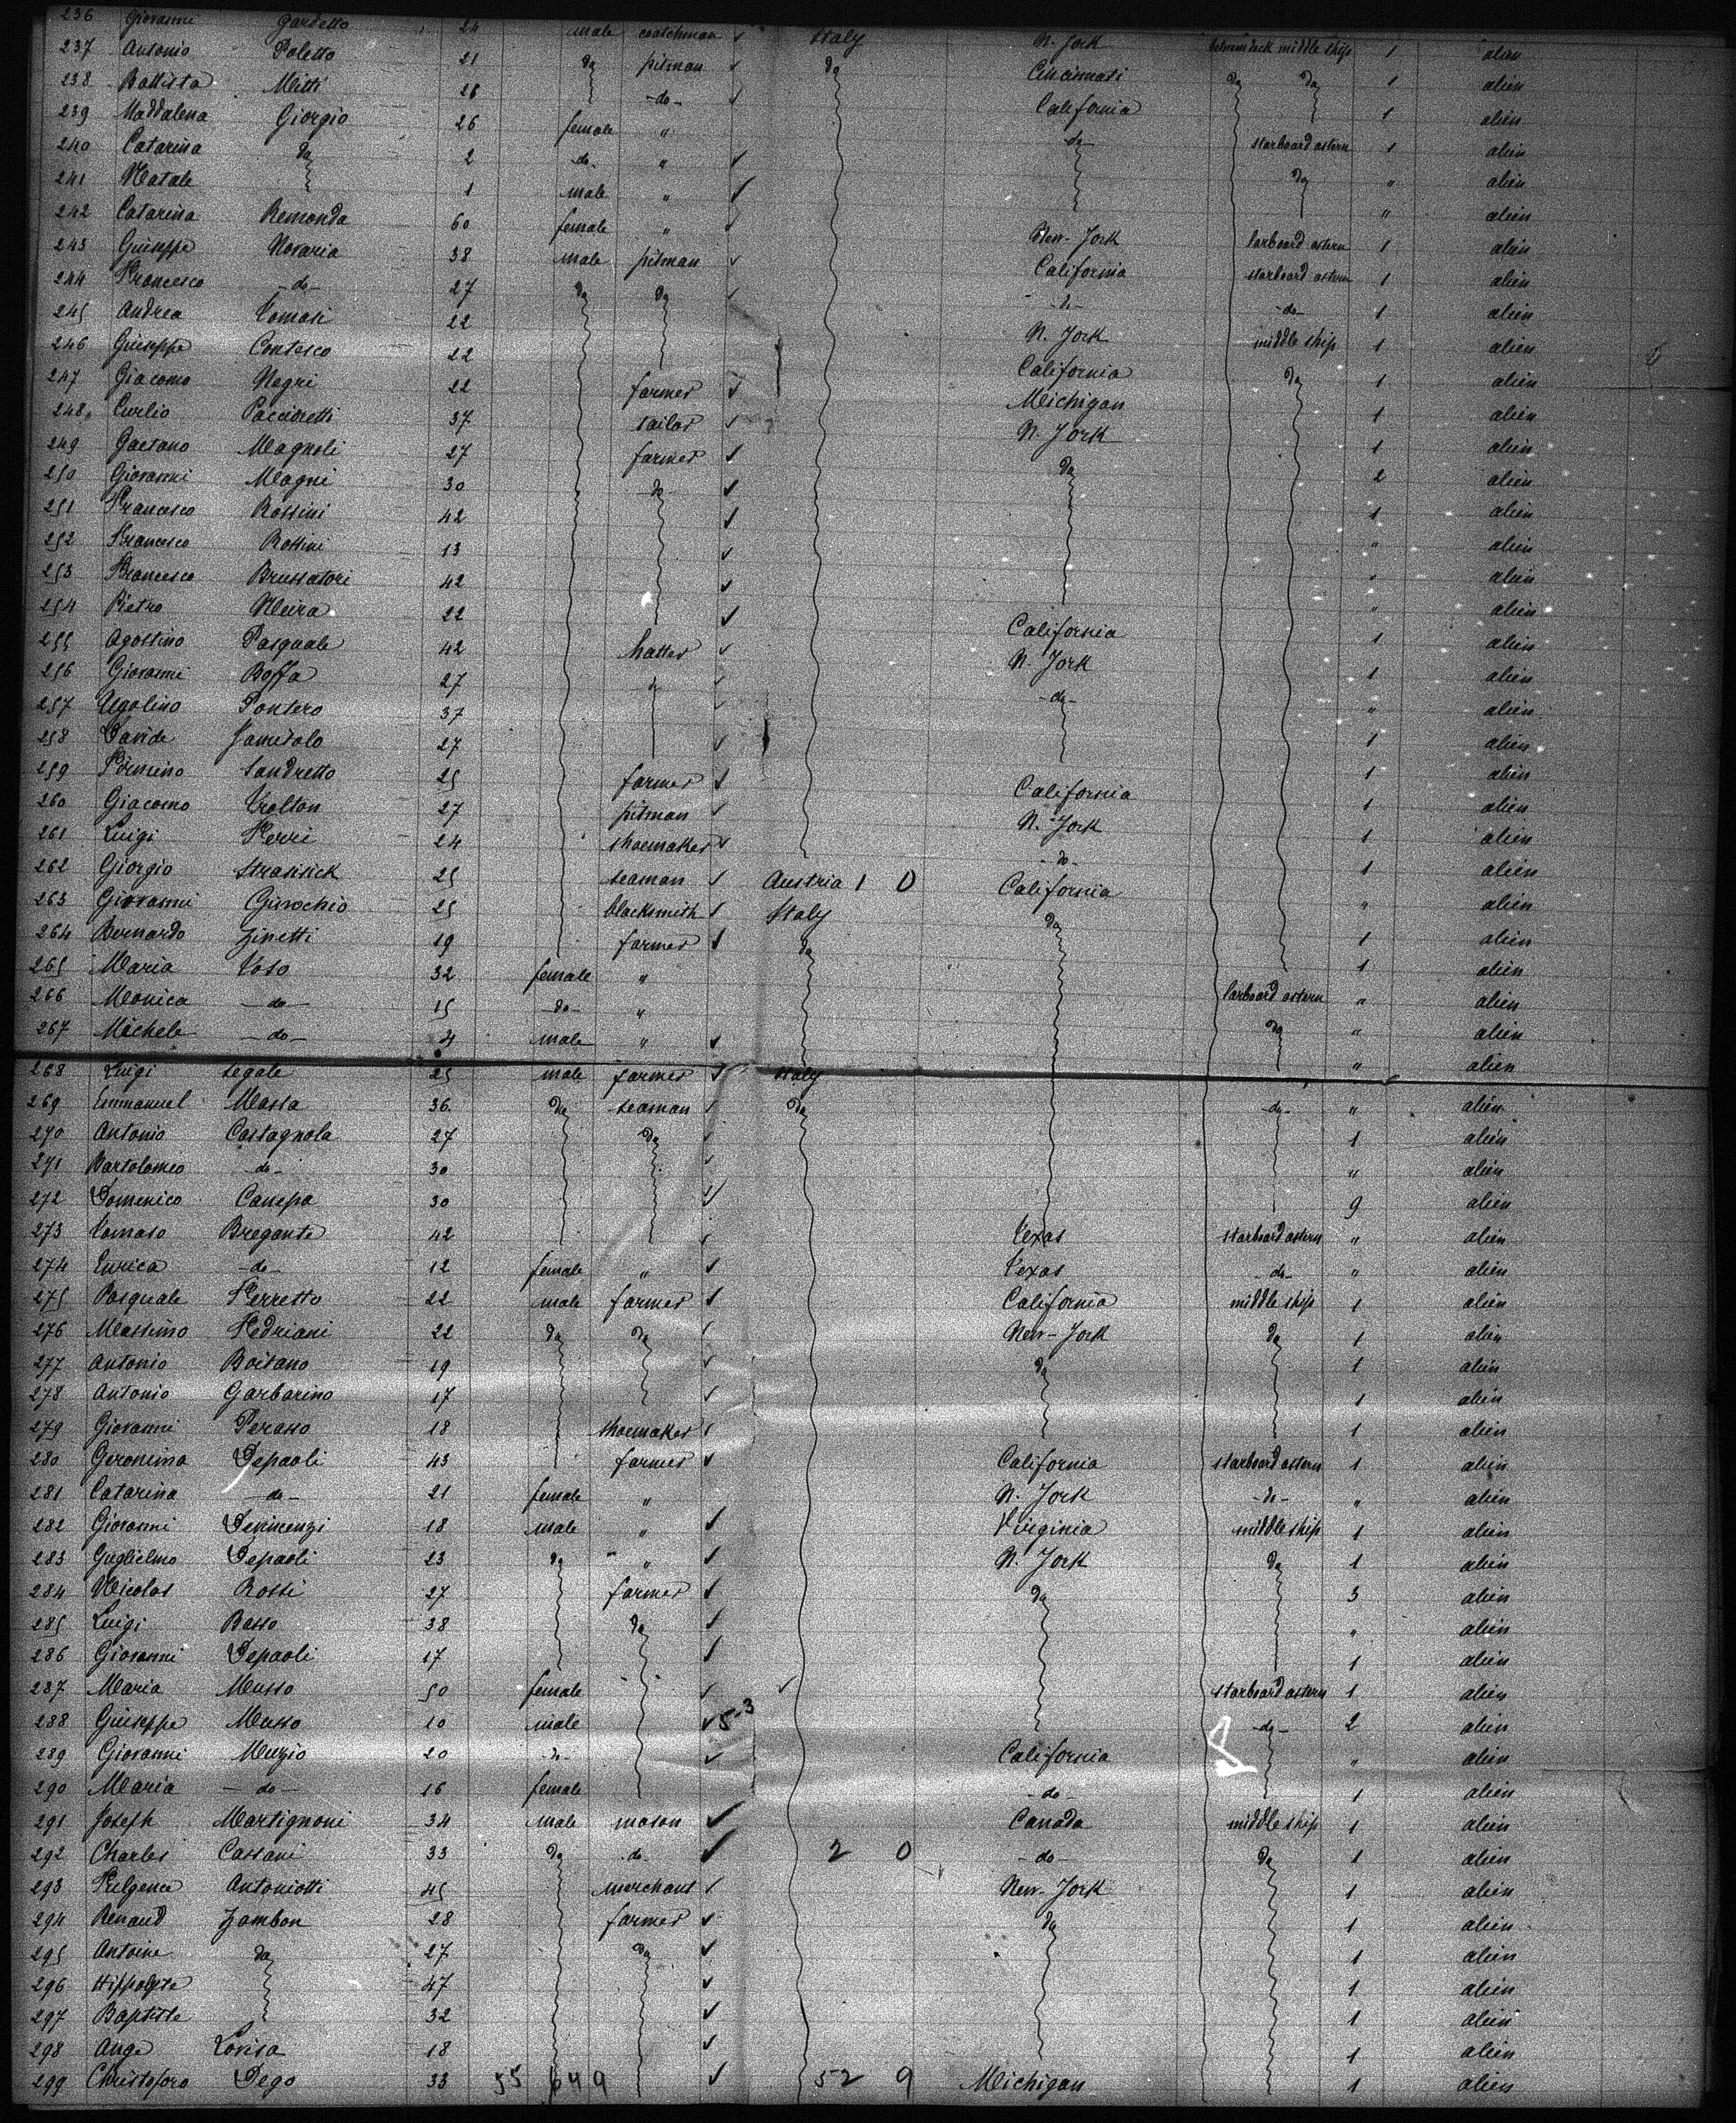 236 Giovanni Gardetto 24 male coatchman ✓ Italy N. York between deck middle ship 1 alien
237 Antonio Poletto 21 do pitman ✓ do Cincinnati do do 1 alien
238 Battista Mitti 28 -do- ✓ California 1 alien
239 Maddalena Giorgio 26 female " -do- starboard astern 1 alien
240 Catarina do 2 -do- " ✓ do " alien
241 Natale 1 male " ✓ " alien
242 Catarina Remonda 60 female " ✓ New-York larboard astern 1 alien
243 Guiseppe Novaria 38 male pitman ✓ California starboard astern 1 alien
244 Francesco -do- 27 do do ✓ -do- -do- 1 alien
245 Andrea Tomasi 22 N. York middle ship 1 alien
246 Guiseppe Contesco 22 California do 1 alien
247 Giacomo Negri 22 farmer ✓ Michigan 1 alien
248 Curlio Paccioretti 37 tailor ✓ N. York 1 alien
249 Gaetano Magnoli 27 farmer ✓ do 2 alien
250 Giovanni Magni 30 -do- ✓ 1 alien
251 Francesco Rossini 42 ✓ " alien
252 Francesco Rossini 13 ✓ " alien
253 Francesco Brussatori 42 ✓ " alien
254 Pietro Neira 22 ✓ California 1 alien
255 Agostino Pasquale 42 hatter ✓ N. York 1 alien
256 Giovanni Boffa 27 do ✓ -do- " alien
257 Ugolino Pontero 37 ✓ 1 alien
258 Davide 27 ✓ 1 alien
259 Firmino Sandretto 25 farmer ✓ California 1 alien
260 Giacomo Trolton 27 pitman ✓ N. York 1 alien
261 Luigi Ferri 24 shoemaker ✓ -do- 1 alien
262 Giorgio Strasisick 25 seaman ✓ Austria 1 0 California " alien
263 Giovanni Girochio 25 blacksmith ✓ Italy do 1 alien
264 Bernardo Zinetti 19 farmer ✓ do 1 alien
265 Maria Toso 32 female " larboard astern " alien
266 Monica -do- 15 -do- " do " alien
267 Michele -do- 4 male " ✓ " alien
268 Luigi Segale 25 male farmer ✓ Italy
269 Emmanuel Massa 36 do seaman ✓ do -do- " alien
270 Antonio Castagnola 27 do ✓ 1 alien
271 Bartolomeo -do- 30 ✓ " alien
272 Domenico Canepa 30 ✓ 9 alien
273 Tomaso Bregante 42 ✓ Texas starboard astern " alien
274 Enrica -do- 12 female " ✓ Texas -do- " alien
275 Pasquale Ferretto 22 male farmer ✓ California middle ship 1 alien
276 Massimo Fedriani 22 do do ✓ New-York do 1 alien
277 Antonio Boitano 19 ✓ do 1 alien
278 Antonio Garbarino 17 ✓ 1 alien
279 Giovanni Perasso 18 shoemaker ✓ 1 alien
280 Geronimo Depaoli 43 farmer ✓ California starboard astern 1 alien
281 Catarina -do- 21 female " N. York -do- " alien
282 Giovanni Devincenzi 18 male " ✓ Virginia middle ship 1 alien
283 Guglielmo Depaoli 23 do " ✓ N. York do 1 alien
284 Nicolas Rossi 27 farmer ✓ do 3 alien
285 Luigi Basso 38 do ✓ " alien
286 Giovanni Depaoli 17 ✓ 1 alien
287 Maria Musso 50 female ✓ starboard astern 1 alien
288 Guiseppe Musso 10 male ✓ 5-3 -do- 2 alien
289 Giovanni Muzio 20 -do- ✓ California " alien
290 Maria -do- 16 female -do- 1 alien
291 Joseph Martignoni 34 male mason ✓ Canada middle ship 1 alien
292 Charles Cassani 33 do do ✓ 2 0 -do- do 1 alien
293 Fulgence Antoniotti 45 merchant ✓ New-York 1 alien
294 Renaud Zambon 28 farmer ✓ do 1 alien
295 Antoine do 27 do ✓ 1 alien
296 Hippolyte 47 ✓ 1 alien
297 Baptiste 32 ✓ 1 alien
298 Ange Lovisa 18 ✓ 1 alien
299 Christoforo Dego 33 55 649 ✓ 52 9 Michigan 1 alien